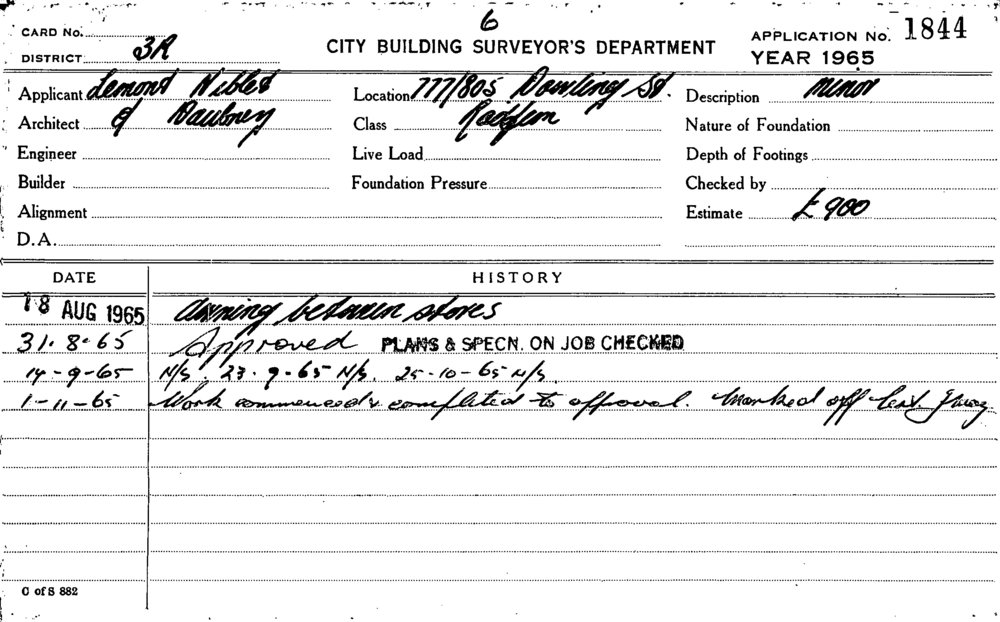 6
CARD No.
CITY BUILDING SURVEYOR'S DEPARTMENT
APPLICATION No. 1844
DISTRICT 3R
YEAR 1965
Applicant Lemont Niblet
Location 777/805 Dowling St.
Description Minor
Architect & Daubney
Class Redfern
Nature of Foundation
Engineer
Live Load
Depth of Footings
Builder
Foundation Pressure
Checked by
Alignment
Estimate £900
D.A.
DATE HISTORY
18 AUG 1965 Awning between stores
31-8-65 Approved PLANS & SPECN. ON JOB CHECKED
14-9-65 N/S. 23-9-65 N/S. 25-10-65 N/S.
1-11-65 Work commenced & completed to approval. Marked off
C of S 882